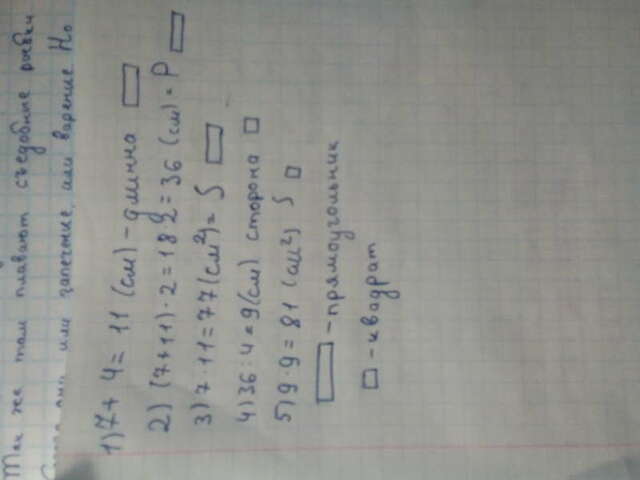 Так же там плавают съедобные рыбки
она или запечение, или варение Но
1) 7 + 4 = 11 (см) - длинна
2) (7+11) · 2 = 18 2 = 36 (см) = P
3) 7 · 11 = 77 (см²) = S
4) 36 : 4 = 9 (см) сторона
5) 9 · 9 = 81 (см²) S
- прямоугольник
- квадрат